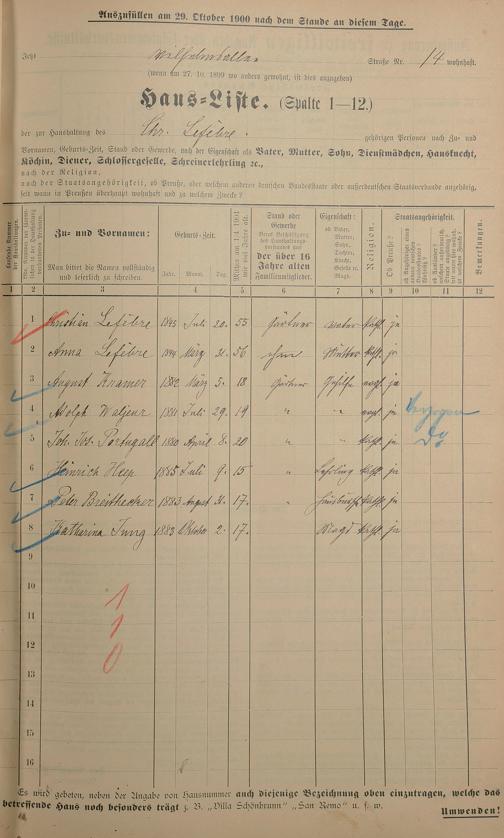 Auszufüllen am 29. Oktober 1900 nach dem Stande an diesem Tage.
Jetzt Wilhelmsallee Straße Nr. 14 wohnhaft.
(wenn am 27. 10. 1899 wo anders gewohnt, ist dies anzugeben)
Haus-Liste. (Spalte 1—12.)
der zur Haushaltung des Chr. Lefèbre. gehörigen Personen nach Zu- und
Vornamen, Geburts-Zeit, Stand oder Gewerbe, nach der Eigenschaft als Vater, Mutter, Sohn, Dienstmädchen, Hausknecht,
Köchin, Diener, Schlossergeselle, Schreinerlehrling ꝛc.,
nach der Religion,
nach der Staatsangehörigkeit, ob Preuße, oder welchem anderen deutschen Bundesstaate oder außerdeutschen Staatsverbande angehörig,
seit wann in Preußen überhaupt wohnhaft und zu welchem Zwecke?
Zu- und Vornamen:
Man bittet die Namen vollständig und leserlich zu schreiben.
Geburts-Zeit.
Jahr. Monat. Tag.
Stand oder Gewerbe
der über 16 Jahre alten Familienmitglieder.
Eigenschaft:
ob Vater, Mutter, Sohn, Tochter, Knecht, Geselle od. Magd.
Religion.
Staatsangehörigkeit.
Ob Preuße?
Bemerkungen.
1 2 3 4 5 6 7 8 9 10 11 12
1 Christian Lefèbre 1845 Juli 20. 55 Gärtner Vater kath. ja
2 Anna Lefèbre 1844 März 31. 56 ohne Mutter kath. ja
3 August Kramer 1882 März 5. 18 Gärtner Gehilfe evgl. ja
4 Adolph 1881 Juli 29. 19 " " evgl. ja verzogen
5 Joh. Jos. Portugall 1880 April 8. 20 " " kath. ja do
6 Heinrich Heep 1885 Juli 9. 15 " Lehrling kath. ja
7 Peter Breitbecker 1883 August 31. 17. " Hausbursch kath. ja
8 Katharina Jung 1883 Oktober 2. 17. Magd kath. ja
9
10
11
12
13
14
15
16
1
1
0
Es wird gebeten, neben der Angabe von Hausnummer auch diejenige Bezeichnung oben einzutragen, welche das
betreffende Haus noch besonders trägt z. B. "Villa Schönbrunn" "San Remo" u. s. w.
Umwenden!